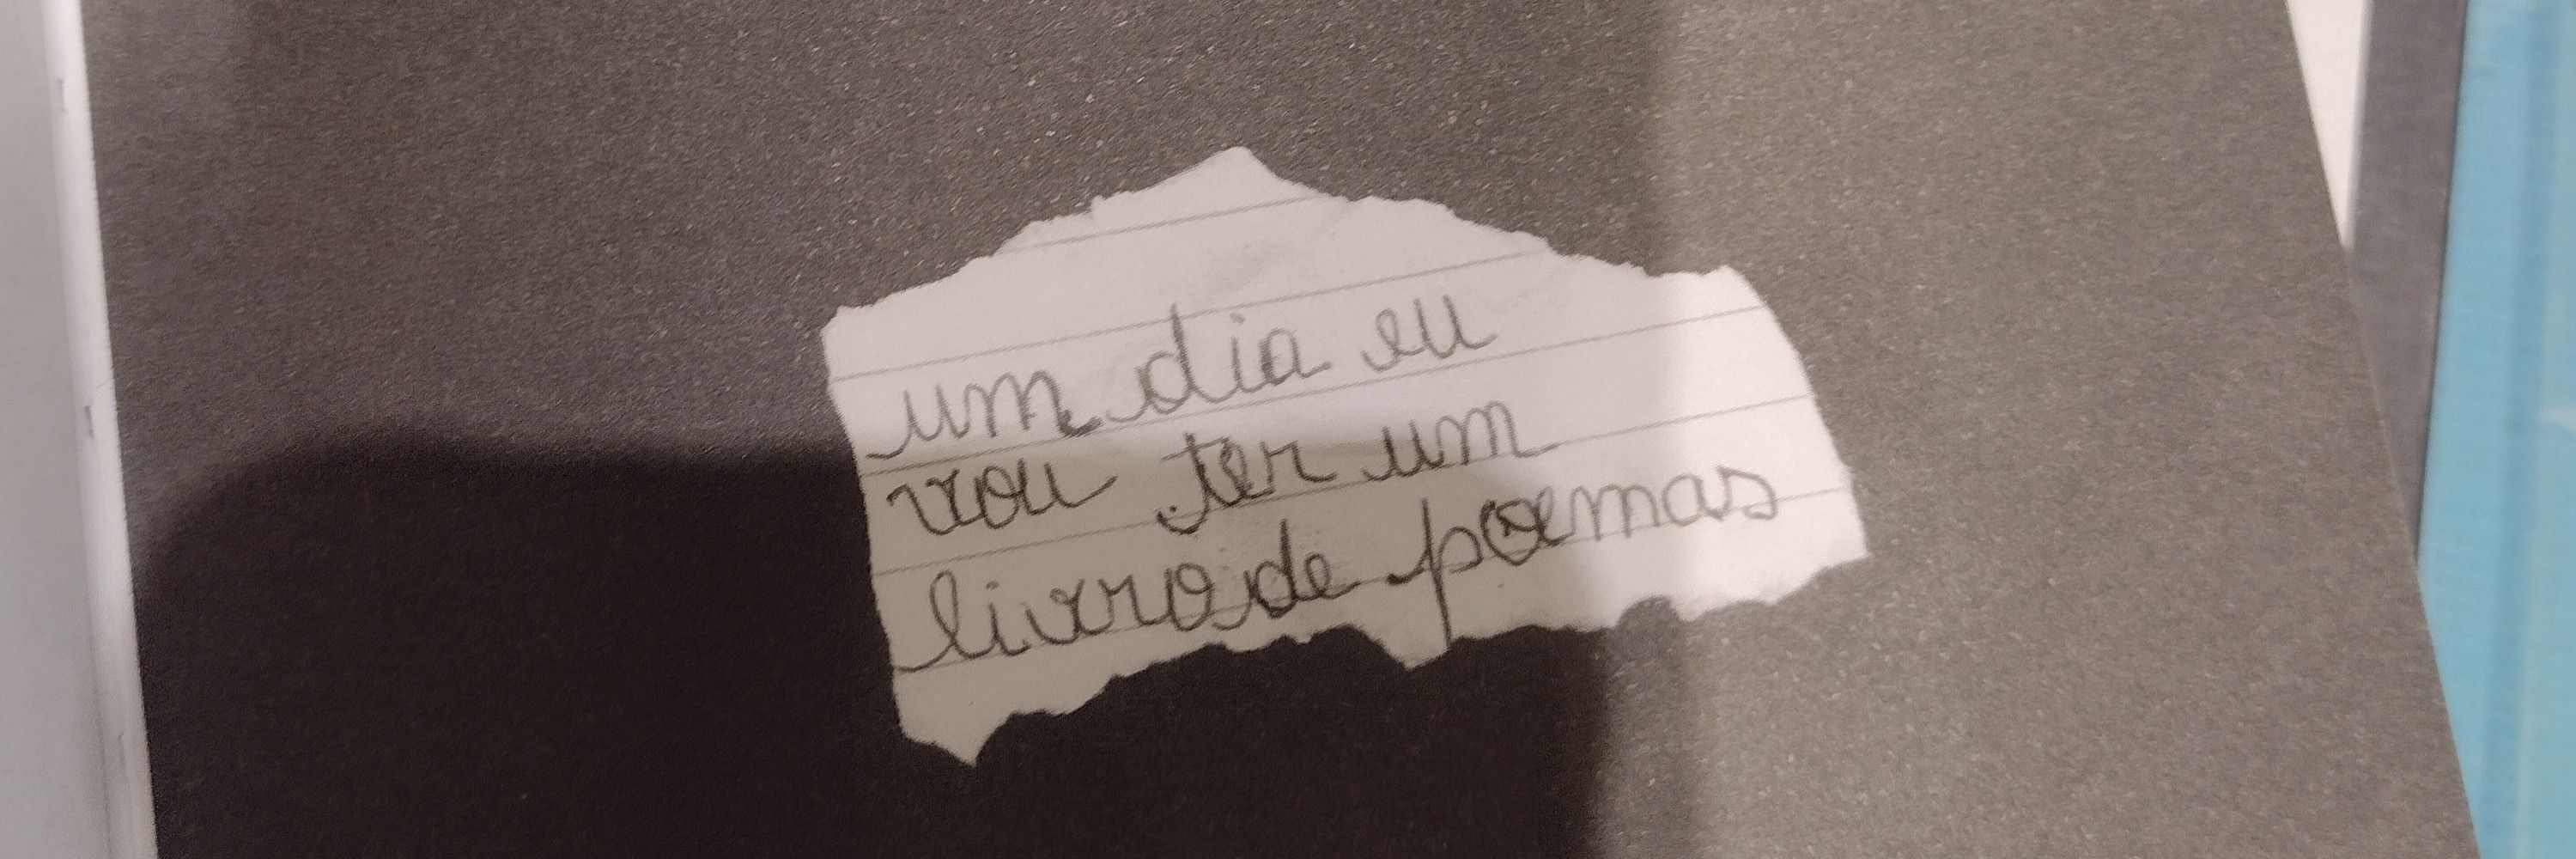 um dia eu
vou ter um
livro de poemas